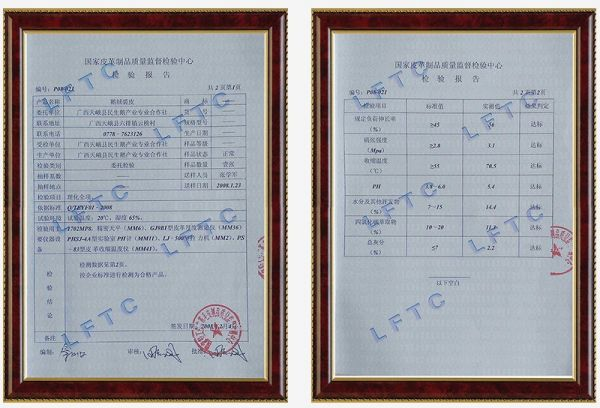 国家皮革制品质量监督检验中心
检 验 报 告
编号: P08-021
共 2 页第1页
产品名称 鹅绒裘皮 商 标
委托单位 广西天峨县民生鹅产业专业合作社
联系地址 广西天峨县六排镇云榜村 规格型号
联系电话 0778-7623126 生产日期
受检单位 广西天峨县民生鹅产业专业合作社 样品等级
生产单位 广西天峨县民生鹅产业专业合作社 样品状态 正常
检验类别 委托检验
抽样基数 送样人员 张学军
抽样地点 送样日期 2008.1.23
检验项目 理化全项
依据标准 2008
试验环境 试验温度: 20℃, 湿度 65%。
检验用
主要仪器
检测数据见第2页。
按企业标准进行检测为合格产品。
检
验
结
论
签发日期
备注
编制:
审核:
批准:
LFTC
LFTC
LFTC
国家皮革制品质量监督检验中心
检 验 报 告
编号: P08-021
共 2 页第2页
检验项目 标准值 实测值 结果判定
规定负荷伸长率 (%) ≥45 达标
撕裂强度 (Mpa) ≥2.8 3.1 达标
收缩温度 (℃) ≥55 70.5 达标
PH 3.8-6.0 5.4 达标
水分及其他挥发物 (%) 7~15 14.4 达标
四氯化碳萃取物 (%) 10~20 达标
总灰分 (%) 2.2 达标
以下空白
LFTC
LFTC
LFTC